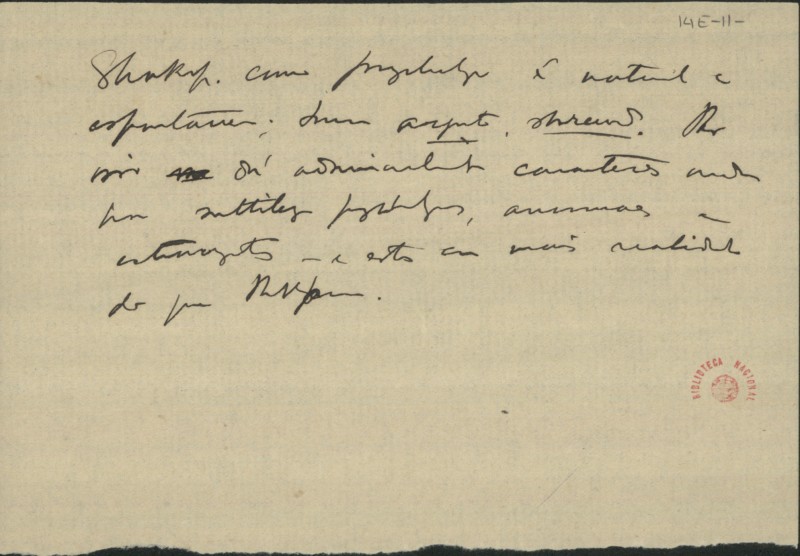 14E-11-
Shaksp. como psychologo é natural e
espontaneo; summ arguto, shrewd. Por
isso dá admiravelmente caracteres onde
ha subtilezas psychologicas, anormaes e
extravagantes — e estes com mais realidade
do que
BIBLIOTECA NACIONAL